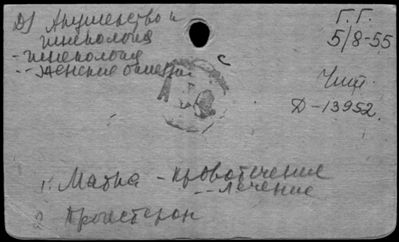 D) Акушерство и
гинекология
- гинекология
-- женские болезни
Г. Г.
5/8-55
Чит.
D-13952.
1. Матка - кровотечение
-- лечение
2. Прогестерон